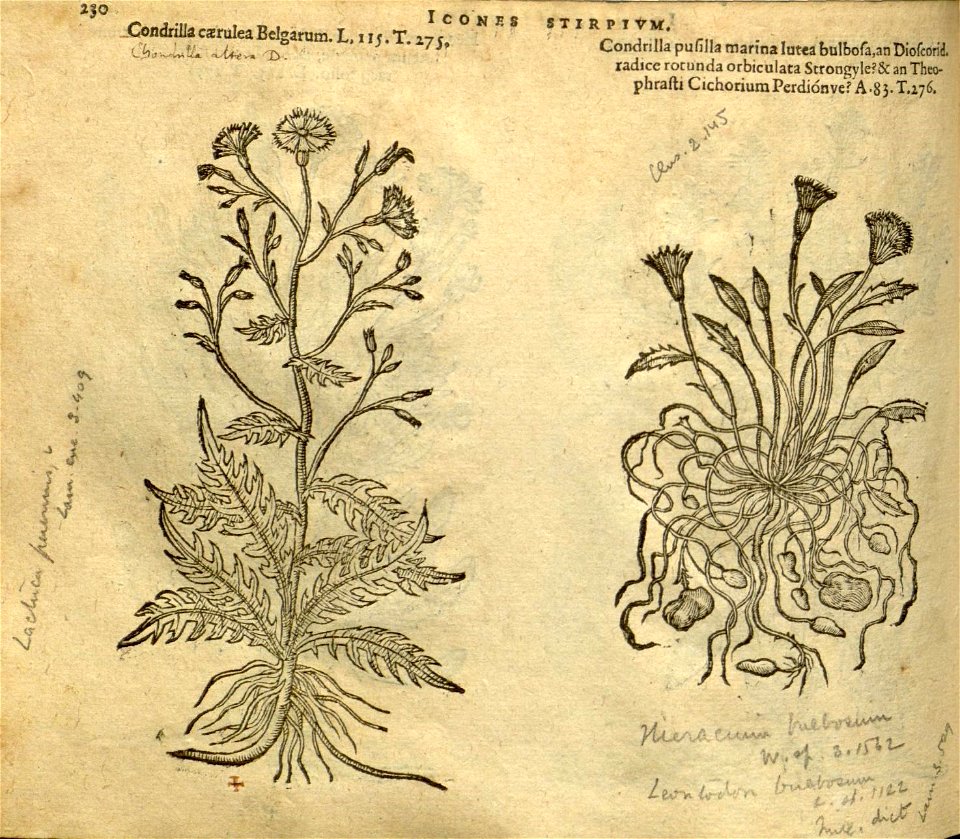 230
ICONES STIRPIVM.
Condrilla cærulea Belgarum. L. 115. T. 275.
Chondrilla altera D.
Condrilla pusilla marina lutea bulbosa, an Dioscorid.
radice rotunda orbiculata Strongyle? & an Theo-
phrasti Cichorium Perdiónve? A. 83. T. 276.
Clus. 2. 145
Lactuca perennis
Lam. enc 3. 409
Hieracium bulbosum
W. sp. 3. 1562
Leontodon bulbosum
L. sp. 1122
dict